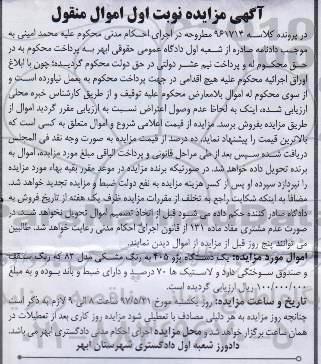 آگهی مزایده نوبت اول اموال منقول
در پرونده کلاسه ۹۶۱۷۱۳ مطروحه در اجرای احکام مدنی محکوم علیه محمد امینی به
موجب دادنامه صادره از شعبه اول دادگاه عمومی حقوقی ابهر به پرداخت محکوم به در
حق محکوم له و پرداخت نیم عشر دولتی در حق دولت محکوم گردیده؛ چون با ابلاغ
اوراق اجرائیه محکوم علیه هیچ اقدامی در جهت پرداخت محکوم به بعمل نیاورده است و
از سوی محکوم له اموال بلامعارض محکوم علیه توقیف و از طریق کارشناس خبره محلی
ارزیابی شده، اینک به لحاظ عدم وصول اعتراض نسبت به ارزیابی مقرر گردید اموال از
طریق مزایده بفروش برسد. مزایده از قیمت اعلامی شروع و اموال متعلق به کسی است که
بالاترین قیمت را پیشنهاد نماید، ده درصد از قیمت مزایده به صورت وجه نقد فی المجلس
دریافت شده سپس بعد از طی مراحل قانونی و پرداخت الباقی مبلغ مورد مزایده، اموال به
برنده تحویل داده خواهد شد. در صورتیکه برنده مزایده در موعد مقرر بقیه بهاء مورد مزایده
را نپردازد سپرده او پس از کسر هزینه مزایده به نفع دولت ضبط و مزایده تجدید خواهد شد.
مضافا به اینکه شکایت راجع به تخلف از مقررات ظرف یک هفته از تاریخ فروش به
دادگاه صادر کننده حکم داده می شود قبل از اتخاذ تصمیم اموال تحویل نخواهد شد. در
صورت عدم مشتری مفاد ماده ۱۳۱ از قانون اجرای احکام مدنی رعایت خواهد شد. طالبین
می توانند پنج روز قبل از مزایده از اموال دیدن نمایند.
اموال مورد مزایده: یک دستگاه پژو ۴۰۵ به رنگ مشکی مدل ۸۲ که رنگ سقف
و صندوق سوختگی دارد و لاستیک ها ۷۰ درصد و دارای ضبط و باند بوده و به مبلغ
۱۰۰/۰۰۰/۰۰۰ ریال ارزیابی گردیده است.
تاریخ و ساعت مزایده: روز یکشنبه مورخ ۹۷/۵/۲۱ ساعت ۸ الی ۹ لازم به ذکر است
چنانچه روز مزایده به هر دلیلی مصادف با تعطیلی شود مزایده روز کاری بعد از تعطیلات در
همان ساعت برگزار خواهد شد و محل مزایده اجرای احکام مدنی دادگستری ابهر می باشد.
دادورز شعبه اول دادگستری شهرستان ابهر